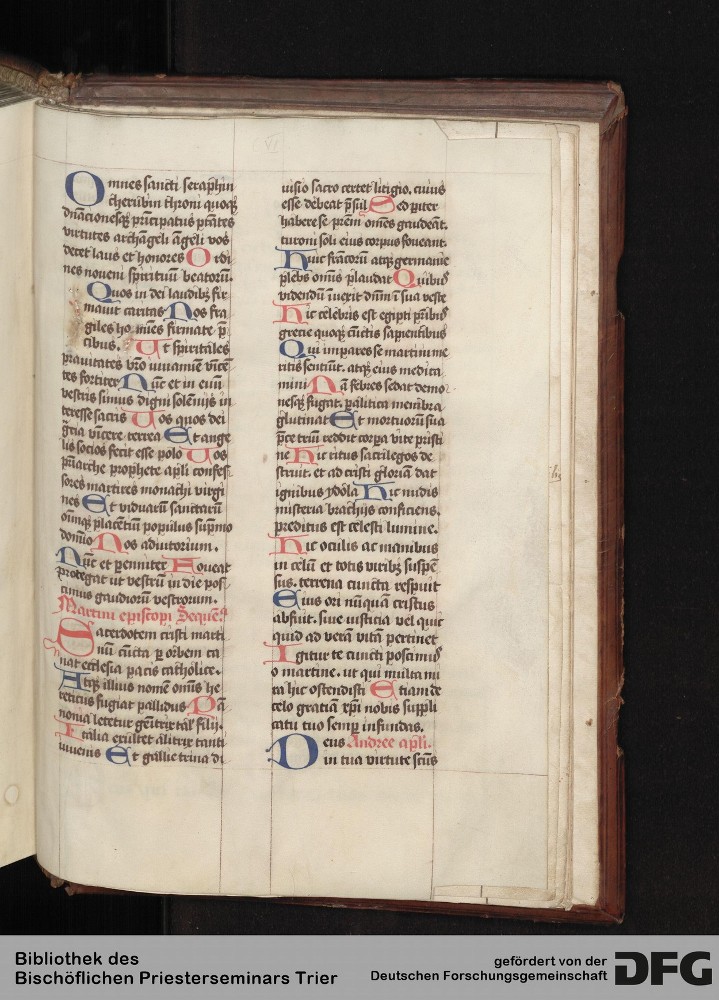 VI
Omnes sancti seraphin
cherubin throni quoqꝫ
dn̄acionesqꝫ prīcipatus ptātes
virtutes archāgeli āgeli vos
decet laus et honores Ordi
nes noveni spirituū beatorū.
Quos in dei laudibꝫ fir
mavit caritas Nos fra
giles homīes firmate p̄
cibus. Ut spiritales
pravitates vr̄o iuvamīe vīcē
tes fortiter Nūc et in evū
vestris simus digni solēniis in
teresse sacris Vos quos dei
gr̄cia vīcere terrea Et ange
lis socios fecit esse polo Vos
pr̄iarche prophete apl̄i confes
sores martires monachi virgi
nes Et viduarū sanctarū
oīmqꝫ placētiū populus supͫmo
domīo Nos adiutorium.
Nūc et penniter Foveat
protegat ut vestrū in die pos
cimus gaudiorū vestrorum.
Martini episcopi Seque᷑
Sacerdotem cristi marti
nū cūcta p orbem ca
nat ecclesia pacis catholice.
Atqꝫ illius nomē om̄is he
reticus fugiat pallidus Pā
nonia letetur gēitrix tal᷑ filij.
Italia exultet alitrix tanti
iuvenis Et gallie trina di
uisio sacro certet litigio. cuius
esse debeat p̄sul Sed pͥter
habere se pr̄em om̄es gaudeāt.
turoni soli eius corpus foveant.
Huic francorū atqꝫ germanie
plebs om̄is plaudat Quibus
videndū īvexit dn̄m ī sua veste
Hic celebris est egipti pr̄ibus
grecie quoqꝫ cūctis sapientibus
Qui impares se martini me
ritis sentiūt. atqꝫ eius medica
mini Nā febres sedat demo
nesqꝫ fugat. palitica membra
glutinat Et mortuorū sua
p̄ce triū reddit corpa vite pristi
ne Hic ritus sacrilegos de
struit. et ad cristi gloriā dat
ignibus ydola Hic nudis
misteria brachijs conficiens.
preditus est celesti lumine.
Hic oculis ac manibus
in celū et totis viribꝫ suspē
sus. terrena cuncta respuit
Eius ori nūquā cristus
abfuit. sive iusticia vel quic
quid ad verā vitā pertinet
Igitur te cuncti poscimus
o martine. ut qui multa mi
ra hic ostendisti Etiam de
celo gratiā xpi nobis suppli
catu tuo semp infundas.
Deus Andree apl̄i.
in tua virtute scūs
Bibliothek des
Bischöflichen Priesterseminars Trier
gefördert von der
Deutschen Forschungsgemeinschaft
DFG